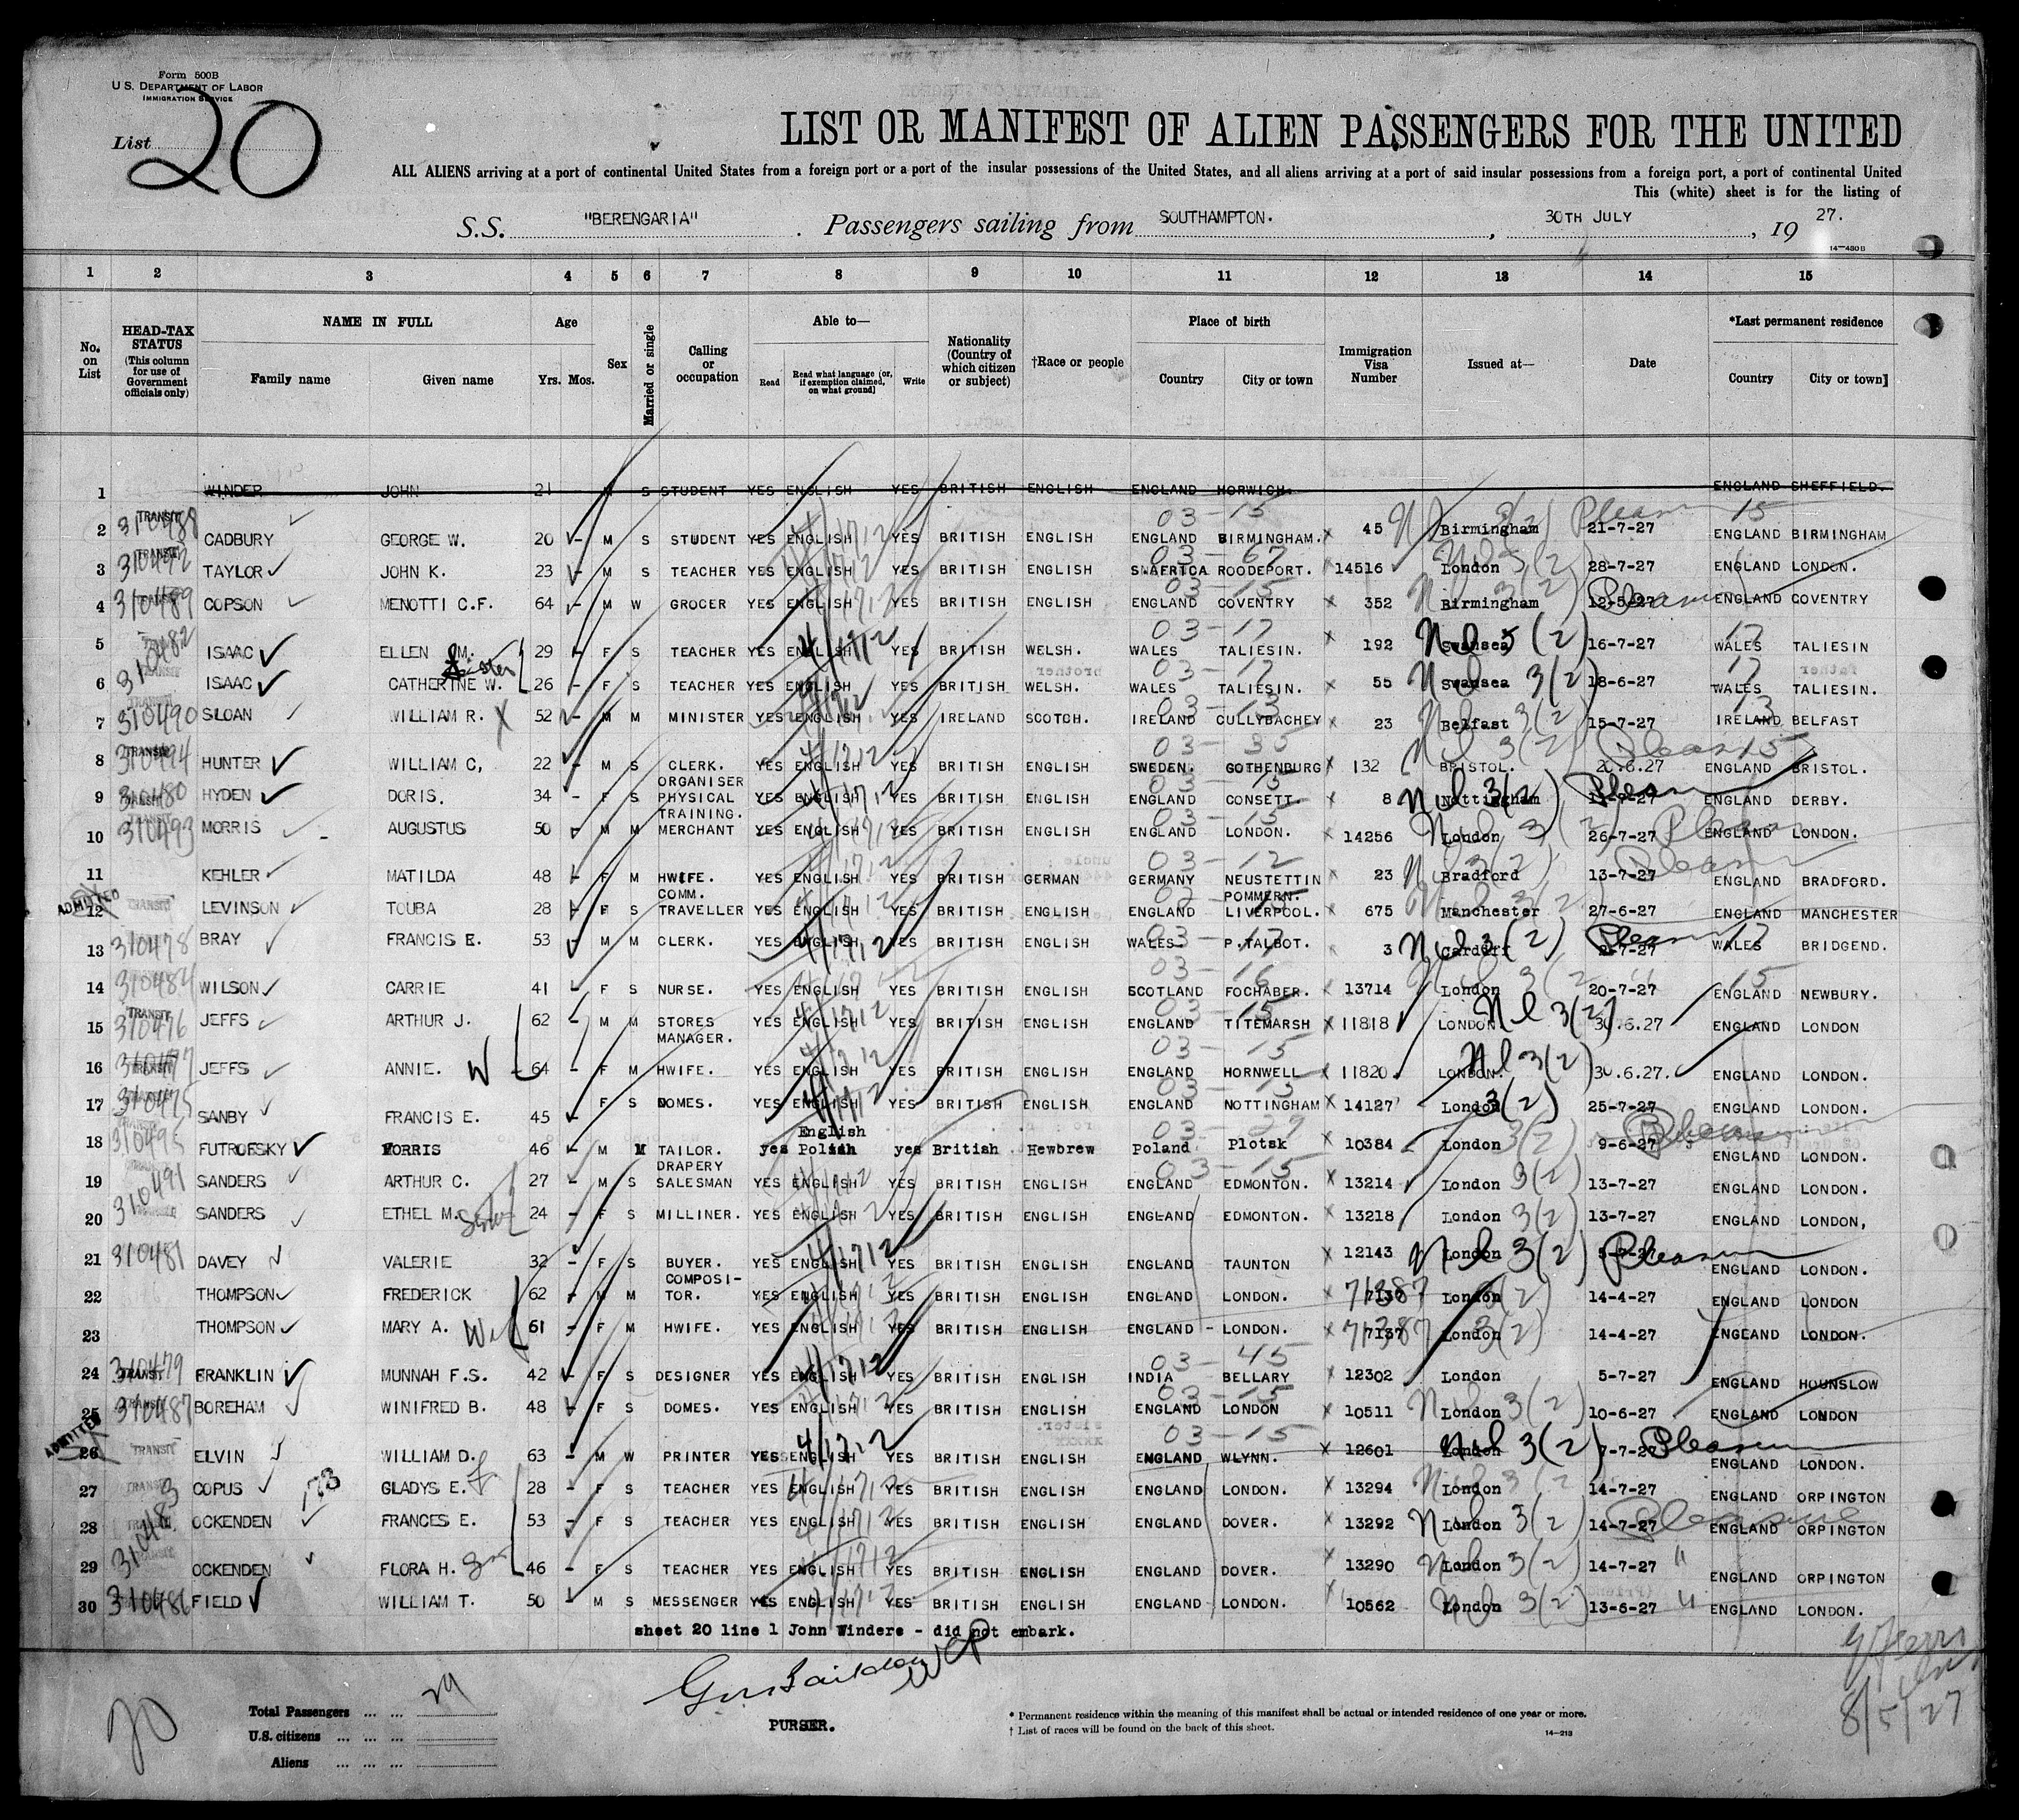 Form 500B
U.S. DEPARTMENT OF LABOR
IMMIGRATION SERVICE
List 20
LIST OR MANIFEST OF ALIEN PASSENGERS FOR THE UNITED
ALL ALIENS arriving at a port of continental United States from a foreign port or a port of the insular possessions of the United States, and all aliens arriving at a port of said insular possessions from a foreign port, a port of continental United
This (white) sheet is for the listing of
S.S. "BERENGARIA" . Passengers sailing from SOUTHAMPTON. , 30TH JULY , 19 27.
14-480B
1 2 3 4 5 6 7 8 9 10 11 12 13 14 15
No. on List HEAD-TAX STATUS (This column for use of Government officials only) NAME IN FULL Family name Given name Age Yrs. Mos. Sex Married or single Calling or occupation Able to— Read Read what language (or, if exemption claimed, on what ground] Write Nationality (Country of which citizen or subject) †Race or people Place of birth Country City or town Immigration Visa Number Issued at— Date *Last permanent residence Country City or town]
1 WINDER JOHN 21 M S STUDENT YES ENGLISH YES BRITISH ENGLISH ENGLAND HORWICH. ENGLAND SHEFFIELD.
03-15 15
2 TRANSIT 310488 CADBURY GEORGE W. 20 - M S STUDENT YES ENGLISH YES BRITISH ENGLISH ENGLAND BIRMINGHAM. X 45 Birmingham 21-7-27 ENGLAND BIRMINGHAM
03-67
3 TRANSIT 310492 TAYLOR JOHN K. 23 - M S TEACHER YES ENGLISH YES BRITISH ENGLISH S.AFRICA ROODEPORT. X 14516 London 28-7-27 ENGLAND LONDON.
03-15
4 TRANSIT 310489 COPSON MENOTTI C.F. 64 - M W GROCER YES ENGLISH YES BRITISH ENGLISH ENGLAND COVENTRY X 352 Birmingham 12-5-27 ENGLAND COVENTRY
03-17 17
5 310482 ISAAC ELLEN M. 29 - F S TEACHER YES ENGLISH YES BRITISH WELSH. WALES TALIESIN. X 192 Swansea 3(2) 16-7-27 WALES TALIESIN
Sister
03-17 17
6 TRANSIT ISAAC CATHERINE W. 26 - F S TEACHER YES ENGLISH YES BRITISH WELSH. WALES TALIESIN. X 55 Swansea 3(2) 18-6-27 WALES TALIESIN.
03-13 13
7 TRANSIT 310490 SLOAN WILLIAM R. X 52 M M MINISTER YES ENGLISH YES IRELAND SCOTCH. IRELAND CULLYBACHEY X 23 Belfast 3(2) 15-7-27 IRELAND BELFAST
03-35 15
8 TRANSIT 310494 HUNTER WILLIAM C, 22 - M S CLERK. YES ENGLISH YES BRITISH ENGLISH SWEDEN. GOTHENBURG X 132 BRISTOL. 20.6.27 ENGLAND BRISTOL.
03 15
9 TRANSIT 310480 HYDEN DORIS. 34 - F S ORGANISER PHYSICAL TRAINING. YES ENGLISH YES BRITISH ENGLISH ENGLAND CONSETT. X 8 Nottingham 3(2) ENGLAND DERBY.
03-15
10 TRANSIT 310493 MORRIS AUGUSTUS 50 M M MERCHANT YES ENGLISH YES BRITISH ENGLISH ENGLAND LONDON. X 14256 London 3(2) 26-7-27 ENGLAND LONDON.
03-12
11 KEHLER MATILDA 48 - F M HWIFE. YES ENGLISH YES BRITISH GERMAN GERMANY NEUSTETTIN POMMERN. 23 Bradford 13-7-27 ENGLAND BRADFORD.
12 ADMITTED TRANSIT LEVINSON TOUBA 28 - F S COMM. TRAVELLER YES ENGLISH YES BRITISH ENGLISH ENGLAND LIVERPOOL. X 675 Manchester 27-6-27 ENGLAND MANCHESTER
03-17 17
13 310478 BRAY FRANCIS E. 53 M M CLERK. YES ENGLISH YES BRITISH ENGLISH WALES P.TALBOT. 3 Cardiff 3(2) WALES BRIDGEND.
03-16 15
14 310484 WILSON CARRIE 41 - F S NURSE. YES ENGLISH YES BRITISH ENGLISH SCOTLAND FOCHABER. X 13714 London 20-7-27 ENGLAND NEWBURY.
03-15
15 TRANSIT 310476 JEFFS ARTHUR J. 62 - M M STORES MANAGER. YES ENGLISH YES BRITISH ENGLISH ENGLAND TITEMARSH X 11818 LONDON 3(2) 30.6.27 ENGLAND LONDON
03-15
16 TRANSIT 310477 JEFFS ANNIE. W 64 - F M HWIFE. YES ENGLISH YES BRITISH ENGLISH ENGLAND HORNWELL X 11820 LONDON. 3(2) 30.6.27. ENGLAND LONDON.
03-15
17 310475 SANBY FRANCIS E. 45 F S DOMES. YES ENGLISH YES BRITISH ENGLISH ENGLAND NOTTINGHAM X 14127 London 3(2) 25-7-27 ENGLAND LONDON.
18 TRANSIT 310495 FUTROFSKY MORRIS 46 - M M TAILOR. yes English Polish yes British Hewbrew Poland Plotsk X 10384 London 3(2) 9-6-27 ENGLAND LONDON.
03-15
19 310491 SANDERS ARTHUR C. 27 - M S DRAPERY SALESMAN YES ENGLISH YES BRITISH ENGLISH ENGLAND EDMONTON. X 13214 London 3(2) 13-7-27 ENGLAND LONDON.
20 SANDERS ETHEL M. 24 - F S MILLINER. YES ENGLISH YES BRITISH ENGLISH ENGLAND EDMONTON. X 13218 London 3(2) 13-7-27 ENGLAND LONDON,
21 310481 DAVEY VALERIE 32 - F S BUYER. YES ENGLISH YES BRITISH ENGLISH ENGLAND TAUNTON X 12143 London 3(2) Pleasure ENGLAND LONDON.
22 THOMPSON FREDERICK 62 - M M COMPOSI-TOR. YES ENGLISH YES BRITISH ENGLISH ENGLAND LONDON. X 71387 London 3(2) 14-4-27 ENGLAND LONDON
23 THOMPSON MARY A. Wife 61 - F M HWIFE. YES ENGLISH YES BRITISH ENGLISH ENGLAND - LONDON. X 71387 London 3(2) 14-4-27 ENGLAND LONDON.
03-45
24 TRANSIT 310479 FRANKLIN MUNNAH F.S. 42 - F S DESIGNER YES ENGLISH YES BRITISH ENGLISH INDIA BELLARY X 12302 London 5-7-27 ENGLAND HOUNSLOW
03-15
25 TRANSIT 310487 BOREHAM WINIFRED B. 48 F S DOMES. YES ENGLISH YES BRITISH ENGLISH ENGLAND LONDON X 10511 London 3(2) 10-6-27 ENGLAND LONDON
03-15
26 ADMITTED TRANSIT ELVIN WILLIAM D. 63 - M W PRINTER YES ENGLISH YES BRITISH ENGLISH ENGLAND WLYNN. X 12601 London 3(2) 7-7-27 Pleasure ENGLAND LONDON.
27 TRANSIT COPUS 173 GLADYS E. 28 - F S TEACHER YES ENGLISH YES BRITISH ENGLISH ENGLAND LONDON. X 13294 London 3(2) 14-7-27 ENGLAND ORPINGTON
28 310483 OCKENDEN FRANCES E. 53 - F S TEACHER YES ENGLISH YES BRITISH ENGLISH ENGLAND DOVER. X 13292 London 3(2) 14-7-27 Pleasure ENGLAND ORPINGTON
29 OCKENDEN FLORA H. 46 - F S TEACHER YES ENGLISH YES BRITISH ENGLISH ENGLAND DOVER. X 13290 London 3(2) 14-7-27 " ENGLAND ORPINGTON
30 310486 FIELD WILLIAM T. 50 M S MESSENGER YES ENGLISH YES BRITISH ENGLISH ENGLAND LONDON. X 10562 London 3(2) 13-6-27 " ENGLAND LONDON.
sheet 20 line 1 John Winders - did not embark.
20
Total Passengers ... ... 29
U.S. citizens ... ... ...
Aliens ... ... ...
PURSER.
* Permanent residence within the meaning of this manifest shall be actual or intended residence of one year or more.
† List of races will be found on the back of this sheet.
14-213
8/5/27